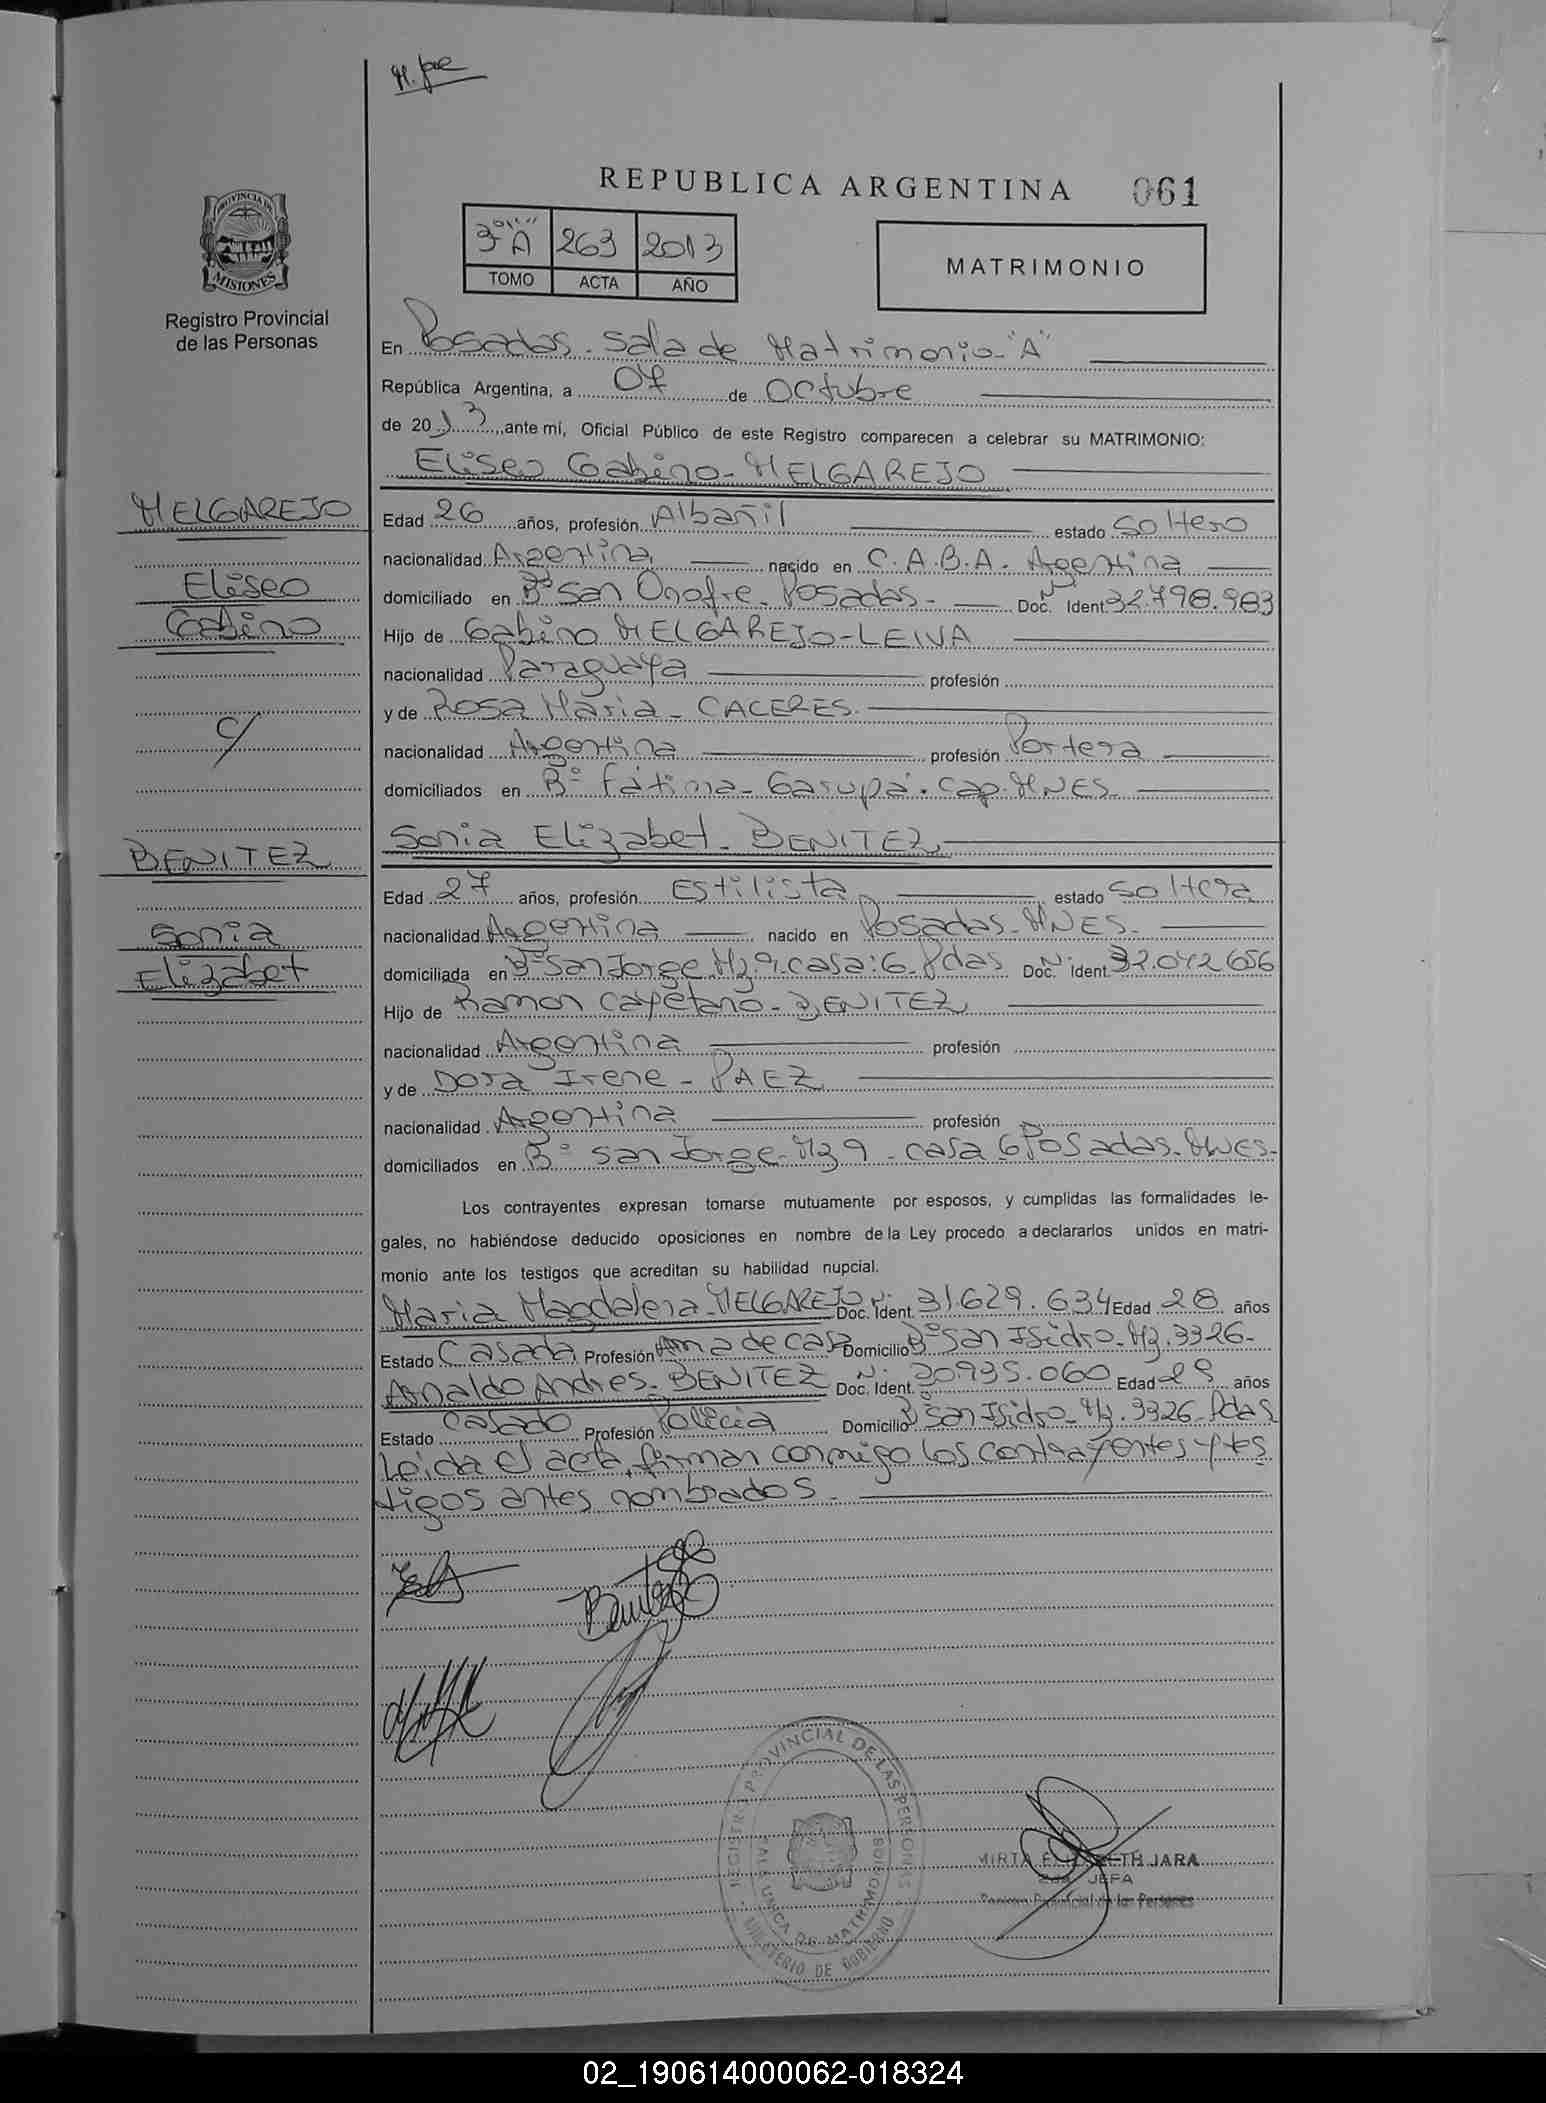 REPUBLICA ARGENTINA 061
3º "A" 263 2013
TOMO ACTA AÑO
MATRIMONIO
PROVINCIA DE
MISIONES
Registro Provincial
de las Personas
En Posadas - Sala de Matrimonio - "A"
República Argentina, a 07 de Octubre
de 2013, ante mí, Oficial Público de este Registro comparecen a celebrar su MATRIMONIO:
Eliseo Gabino - MELGAREJO
MELGAREJO
Eliseo
Gabino
c/
BENITEZ
Sonia
Elizabet
Edad 26 años, profesión Albañil estado Soltero
nacionalidad Argentina nacido en C.A.B.A. Argentina
domiciliado en Bº San Onofre - Posadas - Doc. Nº Ident. 32.798.983
Hijo de Gabino MELGAREJO - LEIVA
nacionalidad Paraguaya profesión
y de Rosa Maria - CACERES.
nacionalidad Argentina profesión Portera
domiciliados en Bº Fátima - Garupá. Cap. MNES
Sonia Elizabet - BENITEZ
Edad 27 años, profesión Estilista estado Soltera
nacionalidad Argentina nacido en Posadas - MNES -
domiciliada en Bº San Jorge Mz. 9. casa: 6. Pdas Doc. Nº Ident. 32.042.656
Hijo de Ramon Cayetano - BENITEZ
nacionalidad Argentina profesión
y de Dora Irene - PAEZ
nacionalidad Argentina profesión
domiciliados en Bº San Jorge - Mz 9 - casa 6 Posadas - MNES -
Los contrayentes expresan tomarse mutuamente por esposos, y cumplidas las formalidades le-
gales, no habiéndose deducido oposiciones en nombre de la Ley procedo a declararlos unidos en matri-
monio ante los testigos que acreditan su habilidad nupcial.
Maria Magdalena - MELGAREJO Doc. Nº Ident. 31.629.634 Edad 28 años
Estado Casada Profesión Ama de casa Domicilio Bº San Isidro - Mz. 3326 -
Arnaldo Andres - BENITEZ Doc. Nº Ident. 30.935.060 Edad años
Estado Casado Profesión Policia Domicilio Bº San Isidro - Mz. 3326 - Pdas
Leida el acta, firman conmigo los contrayentes y tes
tigos antes nombrados -
Benitez
REGISTRO PROVINCIAL DE LAS PERSONAS
SALA UNICA DE MATRIMONIOS
MINISTERIO DE GOBIERNO
MIRTA ELIZABETH JARA
2da. JEFA
Registro Provincial de las Personas
02_190614000062-018324